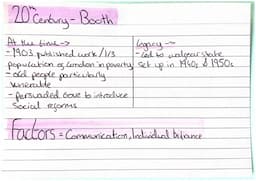 20th Century - Booth
At the time →
- 1903 published work / 1/3
population of London in poverty
- old people particularly
vulnerable
- persuaded gov to introduce
social reforms
Legacy →
- Led to welfare state
set up in 1940s & 1950s
Factors = Communication, Individual brilliance